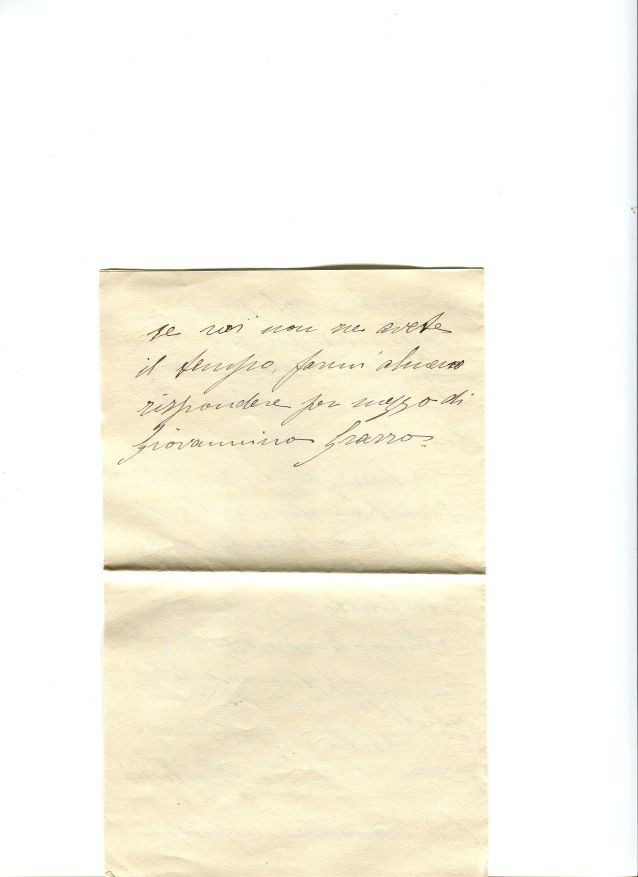 se voi non ne avete
il tempo, fammi almeno
rispondere per mezzo di
Giovannino Grasso.